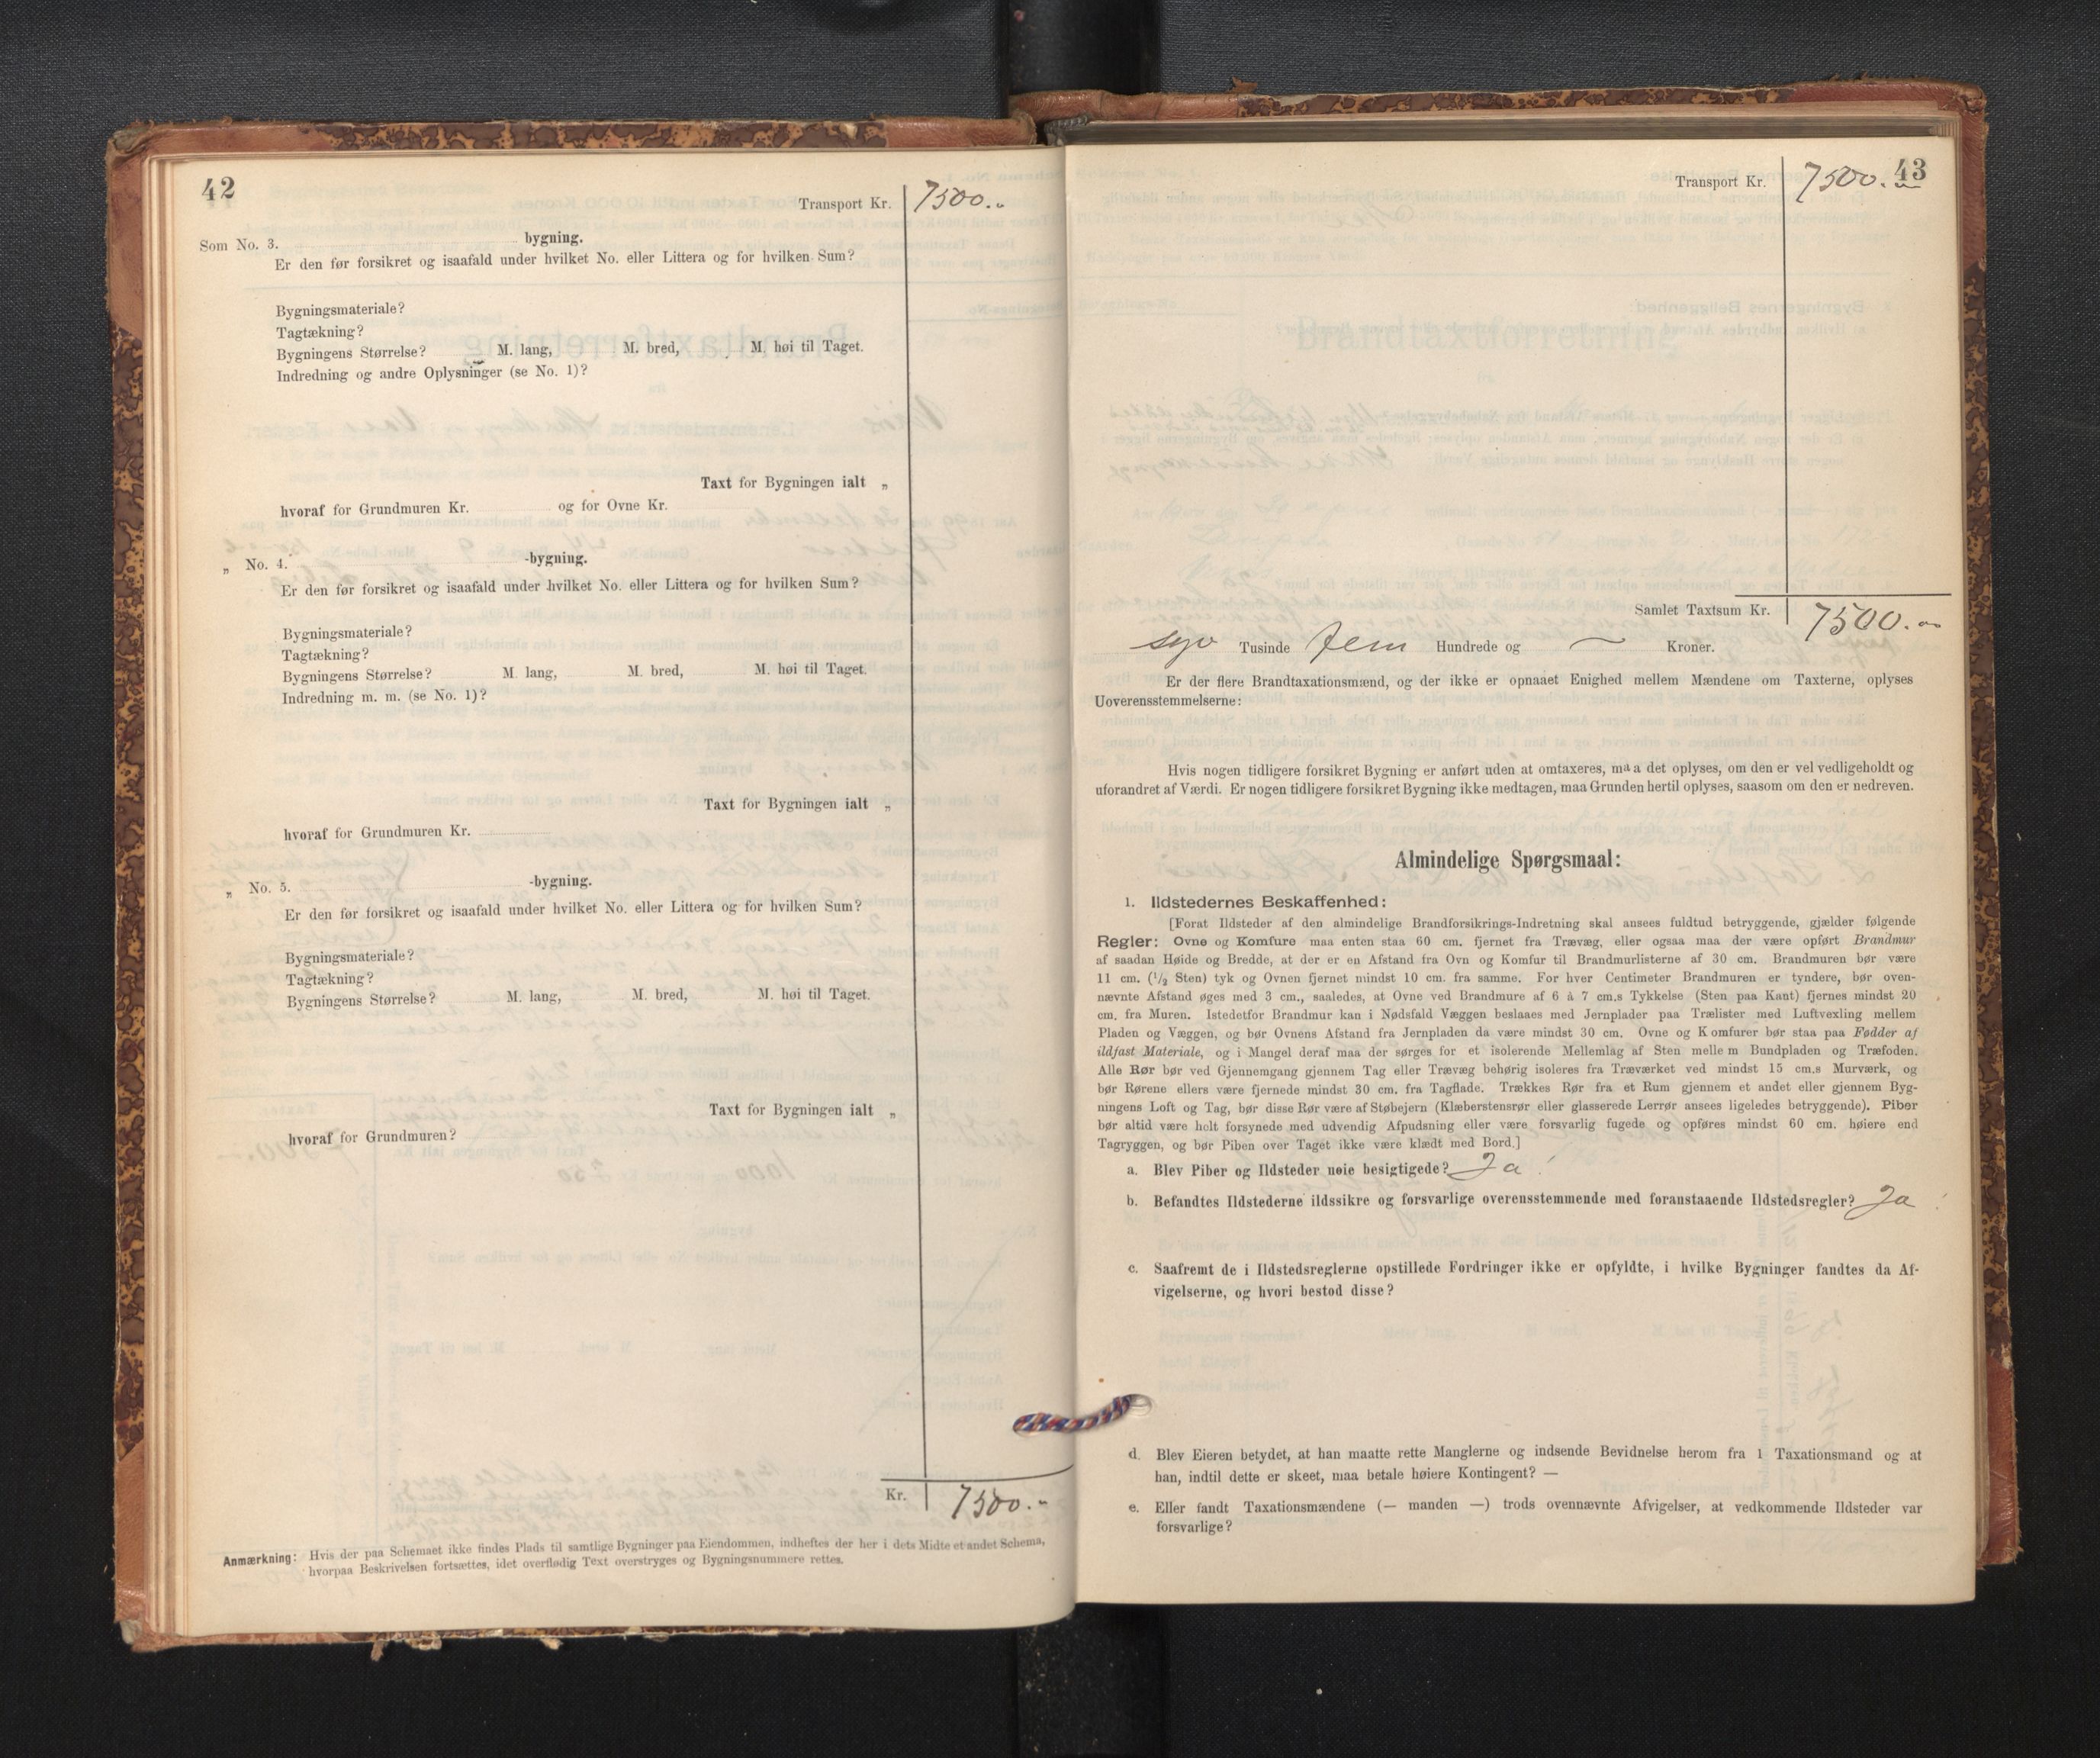 42
Transport Kr. 7500.-
Som No. 3. bygning.
Er den før forsikret og isaafald under hvilket No. eller Littera og for hvilken Sum?
Bygningsmateriale?
Tagtækning?
Bygningens Størrelse? M. lang, M. bred, M. høi til Taget.
Indredning og andre Oplysninger (se No. 1)?
Taxt for Bygningen ialt „
hvoraf for Grundmuren Kr. og for Ovne Kr.
„ No. 4. -bygning.
Er den før forsikret og isaafald under hvilket No. eller Littera og for hvilken Sum?
Bygningsmateriale?
Tagtækning?
Bygningens Størrelse? M. lang, M. bred, M. høi til Taget.
Indredning m. m. (se No. 1)?
Taxt for Bygningen ialt „
hvoraf for Grundmuren Kr.
„ No. 5. -bygning.
Er den før forsikret og isaafald under hvilket No. eller Littera og for hvilken Sum?
Bygningsmateriale?
Tagtækning?
Bygningens Størrelse? M. lang, M. bred, M. høi til Taget.
Taxt for Bygningen ialt „
hvoraf for Grundmuren?
Kr. 7500.-
Anmærkning: Hvis der paa Schemaet ikke findes Plads til samtlige Bygninger paa Eiendommen, indheftes der her i dets Midte et andet Schema,
hvorpaa Beskrivelsen fortsættes, idet overflødig Text overstryges og Bygningsnummere rettes.
43
Transport Kr. 7500.-
Samlet Taxtsum Kr. 7500.-
syv Tusinde fem Hundrede og — Kroner.
Er der flere Brandtaxationsmænd, og der ikke er opnaaet Enighed mellem Mændene om Taxterne, oplyses
Uoverensstemmelserne:
Hvis nogen tidligere forsikret Bygning er anført uden at omtaxeres, maa det oplyses, om den er vel vedligeholdt og
uforandret af Værdi. Er nogen tidligere forsikret Bygning ikke medtagen, maa Grunden hertil oplyses, saasom om den er nedreven.
Almindelige Spørgsmaal:
1. Ildstedernes Beskaffenhed:
[Forat Ildsteder af den almindelige Brandforsikrings-Indretning skal ansees fuldtud betryggende, gjælder følgende
Regler: Ovne og Komfure maa enten staa 60 cm. fjernet fra Trævæg, eller ogsaa maa der være opført Brandmur
af saadan Høide og Bredde, at der er en Afstand fra Ovn og Komfur til Brandmurlisterne af 30 cm. Brandmuren bør være
11 cm. (1/2 Sten) tyk og Ovnen fjernet mindst 10 cm. fra samme. For hver Centimeter Brandmuren er tyndere, bør oven-
nævnte Afstand øges med 3 cm., saaledes, at Ovne ved Brandmure af 6 à 7 cm.s Tykkelse (Sten paa Kant) fjernes mindst 20
cm. fra Muren. Istedetfor Brandmur kan i Nødsfald Væggen beslaaes med Jernplader paa Trælister med Luftvexling mellem
Pladen og Væggen, og bør Ovnens Afstand fra Jernpladen da være mindst 30 cm. Ovne og Komfurer bør staa paa Fødder af
ildfast Materiale, og i Mangel deraf maa der sørges for et isolerende Mellemlag af Sten mellem Bundpladen og Træfoden.
Alle Rør bør ved Gjennemgang gjennem Tag eller Trævæg behørig isoleres fra Træværket ved mindst 15 cm.s Murværk, og
bør Rørene ellers være fjernede mindst 30 cm. fra Tagflade. Trækkes Rør fra et Rum gjennem et andet eller gjennem Byg-
ningens Loft og Tag, bør disse Rør være af Støbejern (Klæberstensrør eller glasserede Lerrør ansees ligeledes betryggende). Piber
bør altid være helt forsynede med udvendig Afpudsning eller være forsvarlig fugede og opføres mindst 60 cm. høiere end
Tagryggen, og bør Piben over Taget ikke være klædt med Bord.]
a. Blev Piber og Ildsteder nøie besigtigede? Ja!
b. Befandtes Ildstederne ildssikre og forsvarlige overensstemmende med foranstaaende Ildstedsregler? Ja!
c. Saafremt de i Ildstedsreglerne opstillede Fordringer ikke er opfyldte, i hvilke Bygninger fandtes da Af-
vigelserne, og hvori bestod disse?
d. Blev Eieren betydet, at han maatte rette Manglerne og indsende Bevidnelse herom fra 1 Taxationsmand og at
han, indtil dette er skeet, maa betale høiere Kontingent? —
e. Eller fandt Taxationsmændene (— manden —) trods ovennævnte Afvigelser, at vedkommende Ildsteder var
forsvarlige?